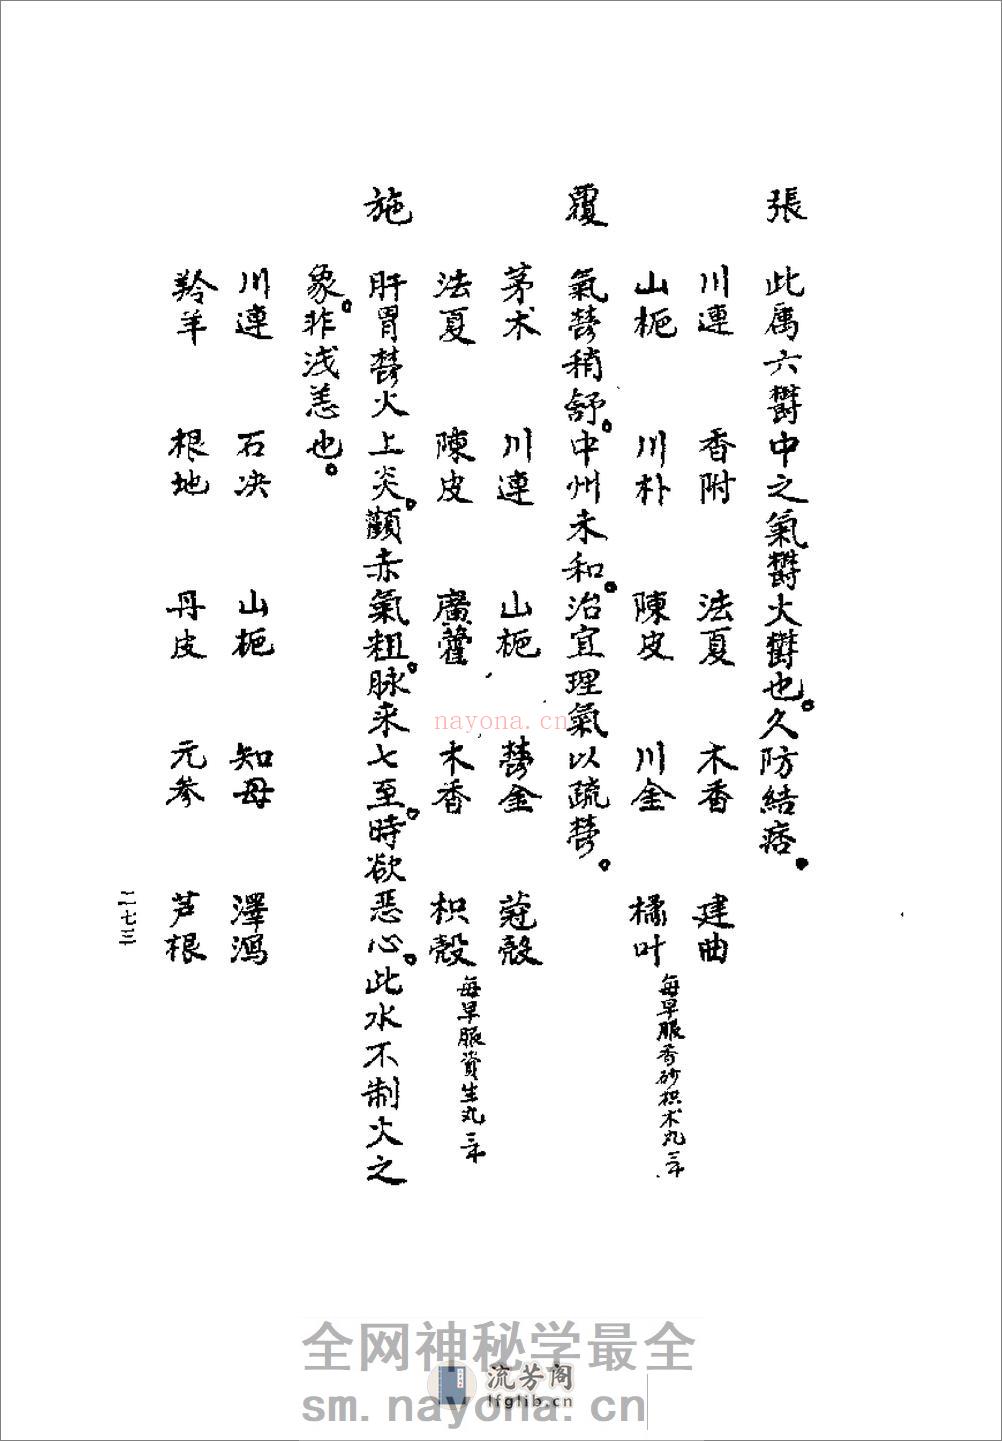 張 此屬六鬱中之氣鬱火鬱也。久防結痞。
川連 香附 法夏 木香 建曲
山梔 川朴 陳皮 川金 橘叶 每早服香砂枳朮丸三
覆 氣鬱稍舒。中州未和。治宜理氣以疏鬱。
茅术 川連 山梔 鬱金 蔻殼
法夏 陳皮 廣藿 木香 枳殼 每早服資生丸三
施 肝胃鬱火上炎。顴赤氣粗。脉来七至。時欲恶心。此水不制火之
象。非浅恙也。
川連 石决 山梔 知母 澤瀉
羚羊 根地 丹皮 元參 芦根
二七三
nayona.cn
全网神秘学最全
流芳阁
lfglib.cn
sm.nayona.cn